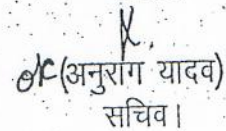 (अनुराग यादव)
सचिव।